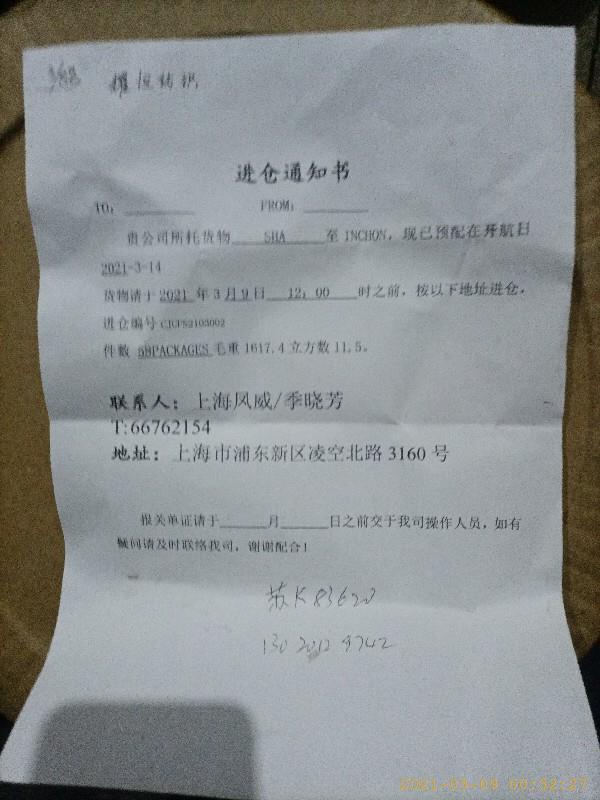 耀恒纺织
进仓通知书
TO: FROM:
贵公司所托货物 SHA 至 INCHON, 现已预配在开航日
2021-3-14
货物请于 2021 年 3 月 9 日 12: 00 时之前, 按以下地址进仓,
进仓编号
件数 58PACKAGES 毛重 1617.4 立方数 11.5。
联系人: 上海风威/季晓芳
T:66762154
地址: 上海市浦东新区凌空北路 3160 号
报关单证请于 月 日之前交于我司操作人员, 如有
疑问请及时联络我司, 谢谢配合!
130
2021-03-09 00:32:27